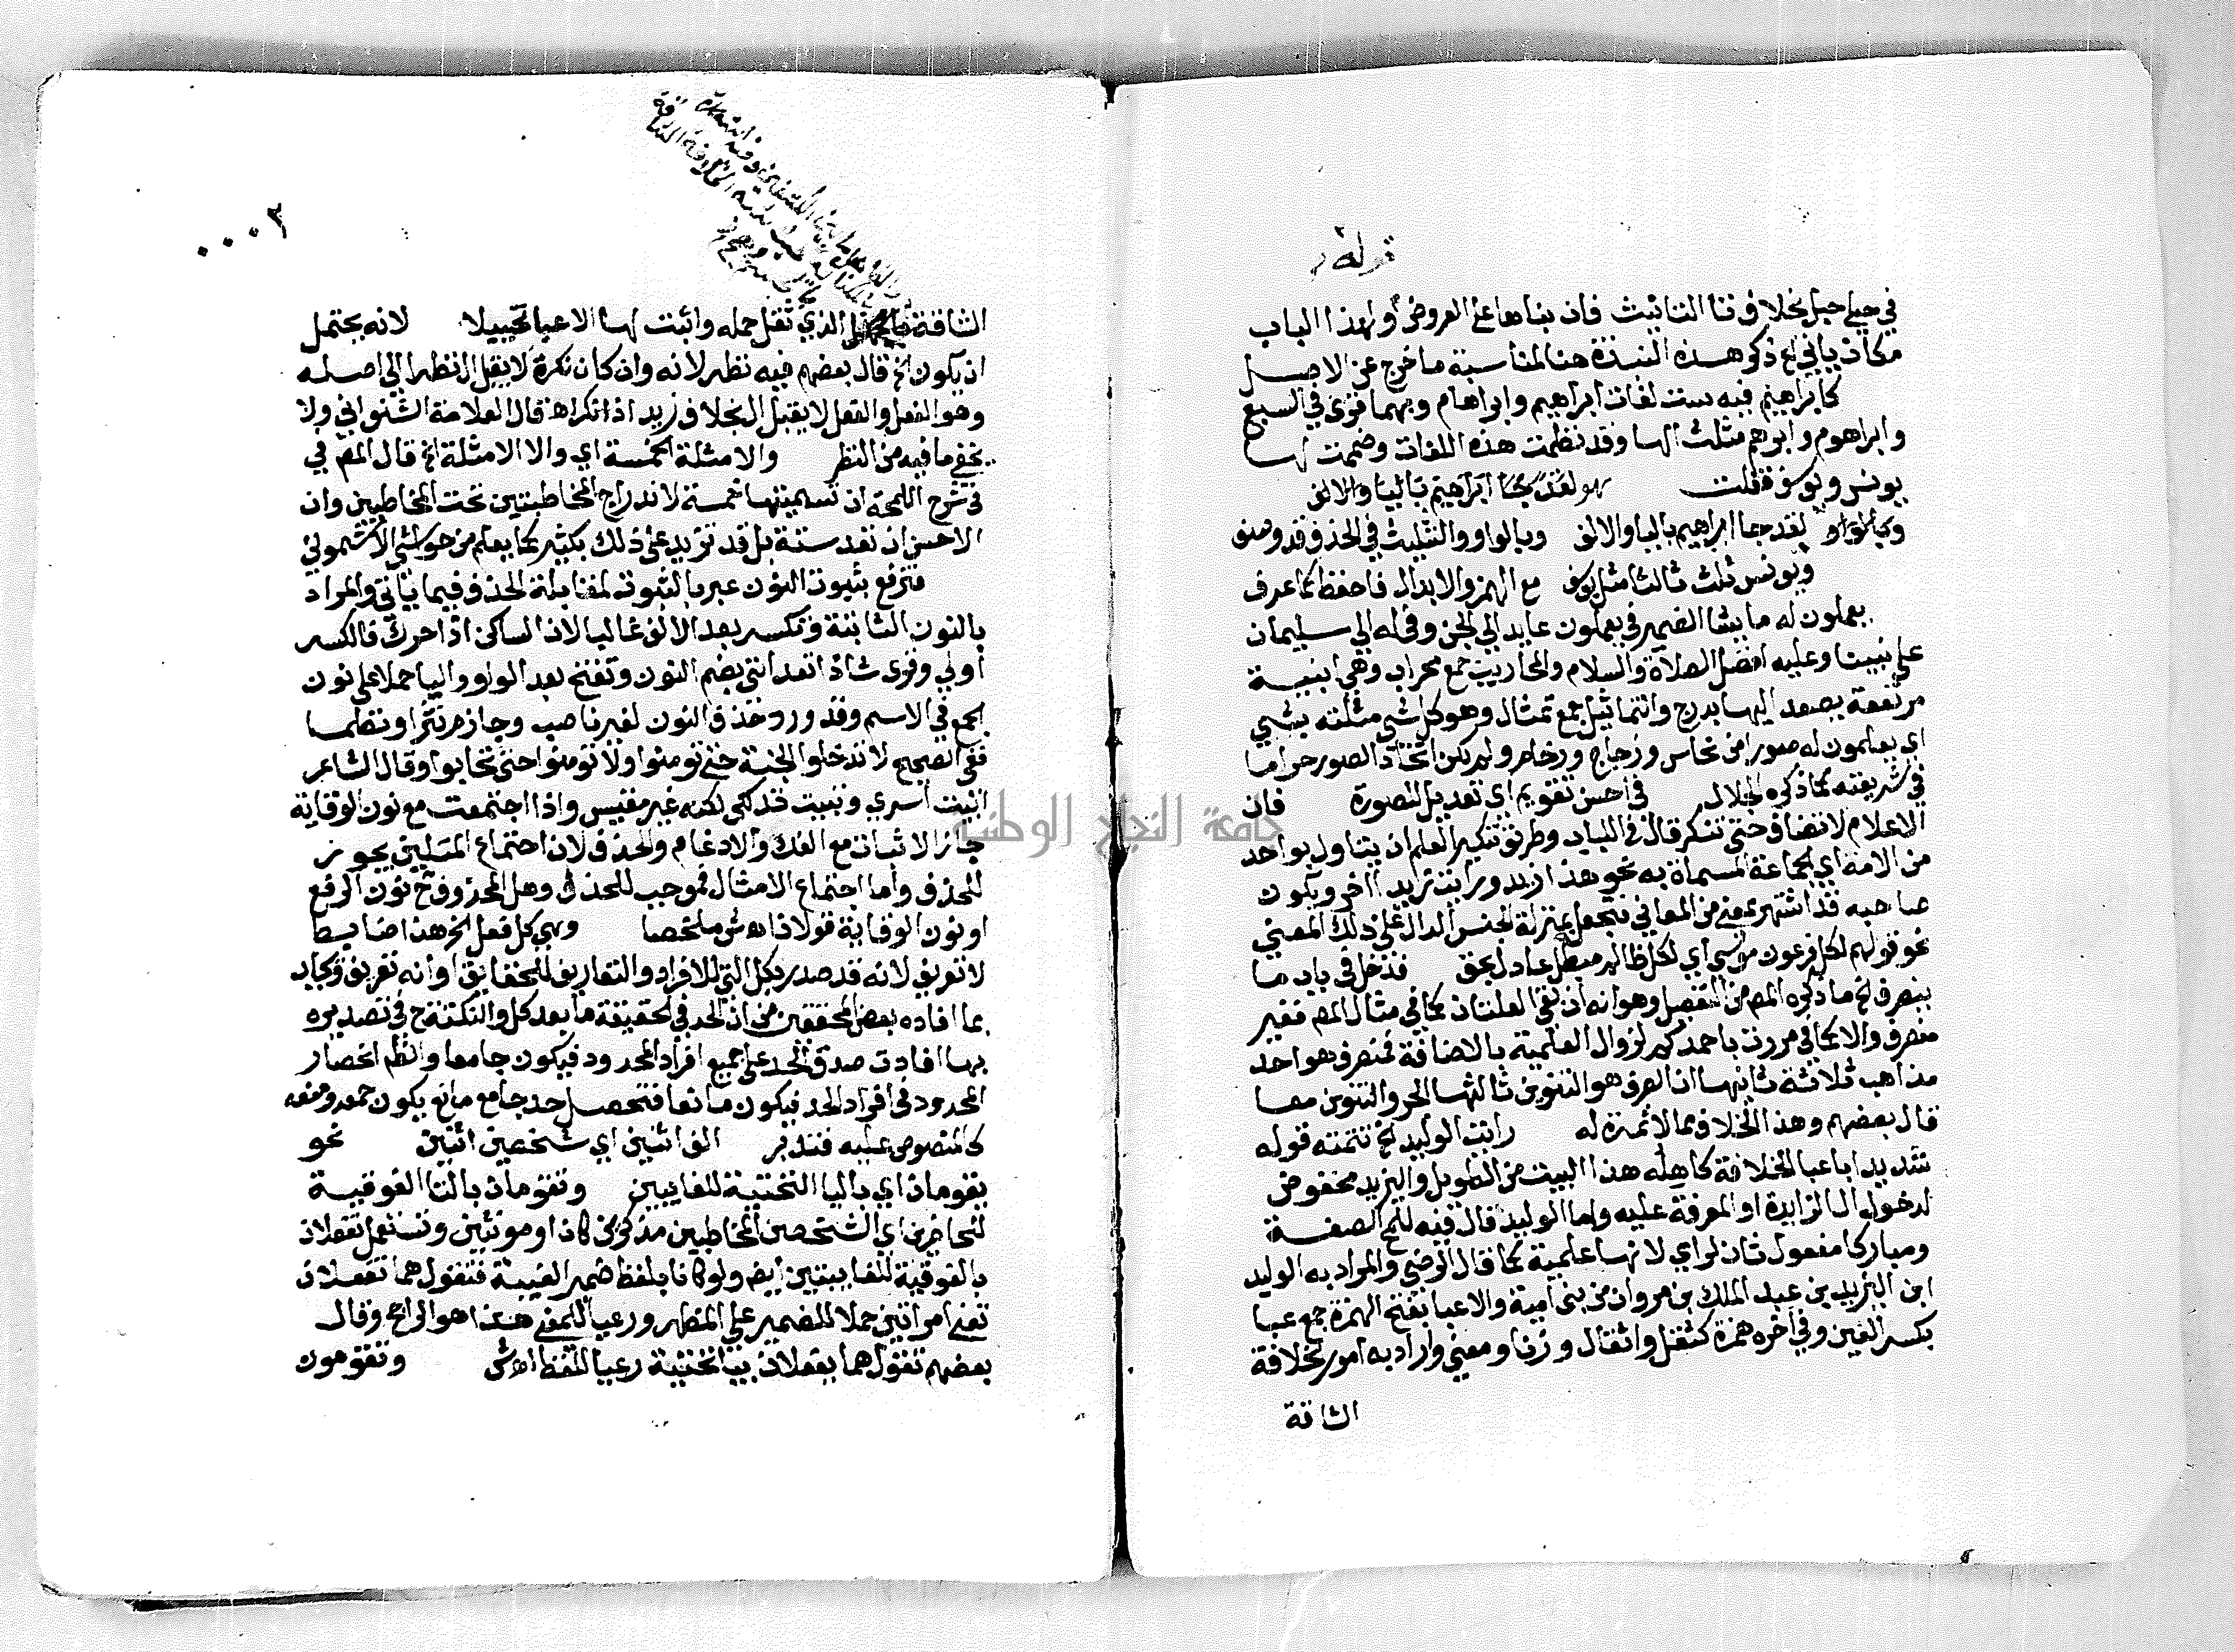 قوله
في حبلي حبل بخلاف تنا التانيث فان بناها على العروض ولهذا الباب
مكان ياتي الخ ذكر هذه النبذة هنا لمناسبة ما خرج عن الاصل
كابراهيم فيه ست لغات ابراهيم وابراهام وبهما قرئ في السبع
وابراهوم وابرهم مثلث الها وقد نظمت هذه اللغات وضممت لها
يونس ويوسف فقلت لقد جا ابراهيم باليا والالف
وبالواو لقد جا ابراهيم باليا والالف وبالواو والتثليث في الحذف قد وصف
ويونس ثلث ثالثا مثل يوسف مع الهمز والابدال فاحفظ لما عرف
يعملون له ما يشا الضمير في يعملون عايد الي الجن وفي له الي سليمان
علي نبينا وعليه افضل الصلاة والسلام والمحاريب جمع محراب وهي ابنية
مرتفعة يصعد اليها بدرج والتماثيل جمع تمثال وهو كل شي مثلته بشي
اي يعلمون له صورا من نحاس وزجاج ورخام ولم يكن اتخاذ الصور حراما
في شريعته كما ذكره الجلال في احسن تقويم اي تعديل لصورة فان
الاعلام لا تضاف حتي تنكر قال في اللباب وطريق تنكير العلم ان يتاول بواحد
من الامة اي الجماعة المسماة به نحو هذا زيد ورايت زيدا اخر ويكون
صاحبه قد اشتهر بمعني من المعاني فيجعل بمنزلة الجنس الدال علي ذلك المعني
نحو قولهم لكل فرعون موسي اي لكل ظالم مبطل عادل محق فدخل في باب ما
ينصرف الخ ما ذكره المص من التفصيل وهو انه ان بقي العلتان كما في مثال المص فغير
منصرف والا كما في مررت باحمدكم لزوال العلمية بالاضافة فمنصرف هو احد
مذاهب ثلاثة ثانيها ان الصرف هو التنوين ثالثها الجر والتنوين معا
قال بعضهم وهذا الخلاف مما لا ثمرة له رايت الوليد الخ تتمته قوله
شديدا باعبا الخلافة كاهله هذا البيت من الطويل واليزيد مخفوض
لدخول ال الزايدة او المعرفة عليه واما الوليد فال فيه للمح الصفة
ومباركا مفعول ثان لراي لانها علمية كما قال الرضي والمراد به الوليد
ابن اليزيد بن عبد الملك بن مروان من بني امية والاعبا بفتح الهمزة جمع عبا
بكسر العين وفي اخره همزة كثقل واثقال وزنا ومعني واراد به امور الخلافة
الشاقة
٣
الشاقة الذي ثقل حمله واثبت لها الاعبا تخييلا لانه يحتمل
ان يكون الخ قال بعضهم فيه نظر لانه وان كان نكرة لا يقبل ال نظرا الي اصله
وهو الفعل والفعل لا يقبل ال بخلاف زيد اذا نكر اه قال العلامة الشنواني ولا
يخفي ما فيه من النظر والامثلة الخمسة اي والا الامثلة الخ قال المص في
في شرح اللمحة ان تسميتها خمسة لاندراج المخاطبتين تحت المخاطبين وان
الاحسن ان تعد ستة بل قد تزيد علي ذلك بكثير كما يعلم من حواشي الاشموني
فترفع بثبوت النون عبر بالثبوت لمقابلة الحذف فيما ياتي والمراد
بالنون الثابتة وتكسر بعد الالف غالبا لان الساكن اذا حرك فالكسر
اولي وقري شاذا اتعدانني بضم النون وتفتح بعد الواو واليا حملا علي نون
الجمع في الاسم وقد ورد حذف النون لغير ناصب وجازم نثرا ونظما
ففي الصحيح لا تدخلوا الجنة حتي تومنوا ولا تومنوا حتي تحابوا وقال الشاعر
ابيت اسري وتبيت تدلكي لكنه غير مقيس واذا اجتمعت مع نون الوقاية
جاز الاثبات مع الفك والادغام والحذف لان اجتماع المثلين يجوز
للحذف واما اجتماع الامثال فموجب للحذف وهل المحذوف ح نون الرفع
او نون الوقاية قولان اه ش ملخصا وهي كل فعل الخ هذا ضابط
لا تعريف لانه قد صدر بكل التي للافراد والتعاريف للحقايق او انه تعريف ويجاب
بما افاده بعض المحققين من ان الحد في الحقيقة ما بعد كل والنكتة ح في تصديره
بها افادت صدق الحد علي جميع افراد المحدود فيكون جامعا وانظم انحصار
المحدود في افراد الحد فيكون مانعا فتحصل حد جامع مانع يكون جمعه ومنعه
كالمنصوص عليه فتدبر الف اثنين اي شخصين اثنين نحو
يقومان اي باليا التحتية للغايبين وتقومان بالتا الفوقية
للحاضرين اي الشخصين المخاطبين مذكرين كانا او مونثين وتستعمل تفعلان
بالفوقية للغايبتين ايض ولو كانا بلفظ ضمير الغيبة فتقول هما تفعلان
تعني امراتين حملا للضمير علي المظهر ورعيا للمعني هذا هو الراجح وقال
بعضهم تقول هما يفعلان بيا تحتية رعيا للفظ اه ش وتقومون
جامعة النجاح الوطنية